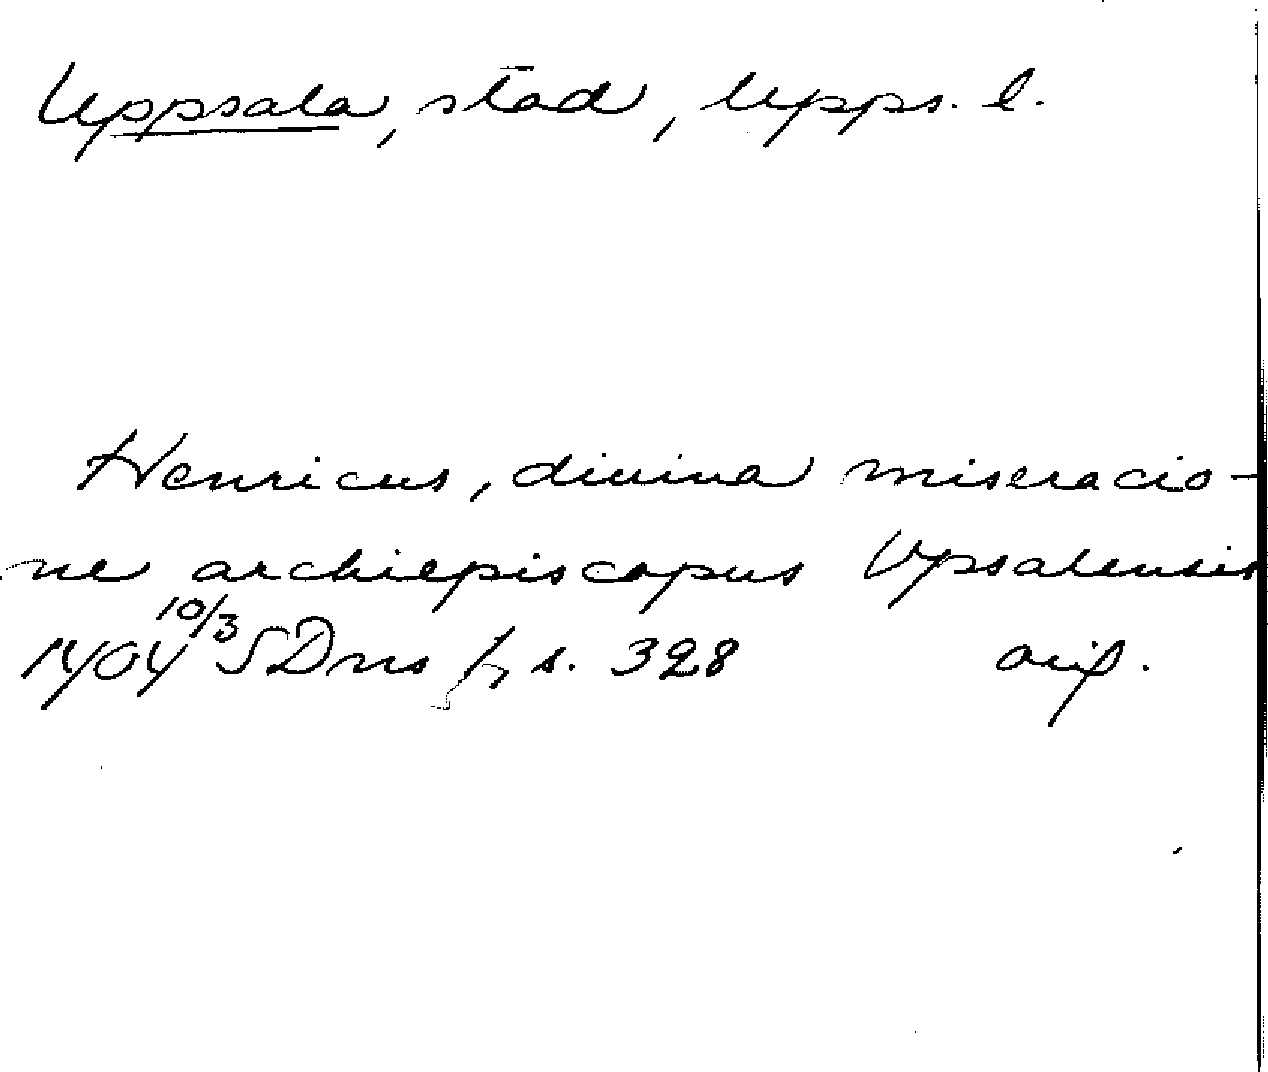 Uppsala, stad, Upps. l.
Henricus, diuina miseracio-
ne archiepiscopus Vpsalensis
1404 10/3 SDns 1, s. 328 orig.